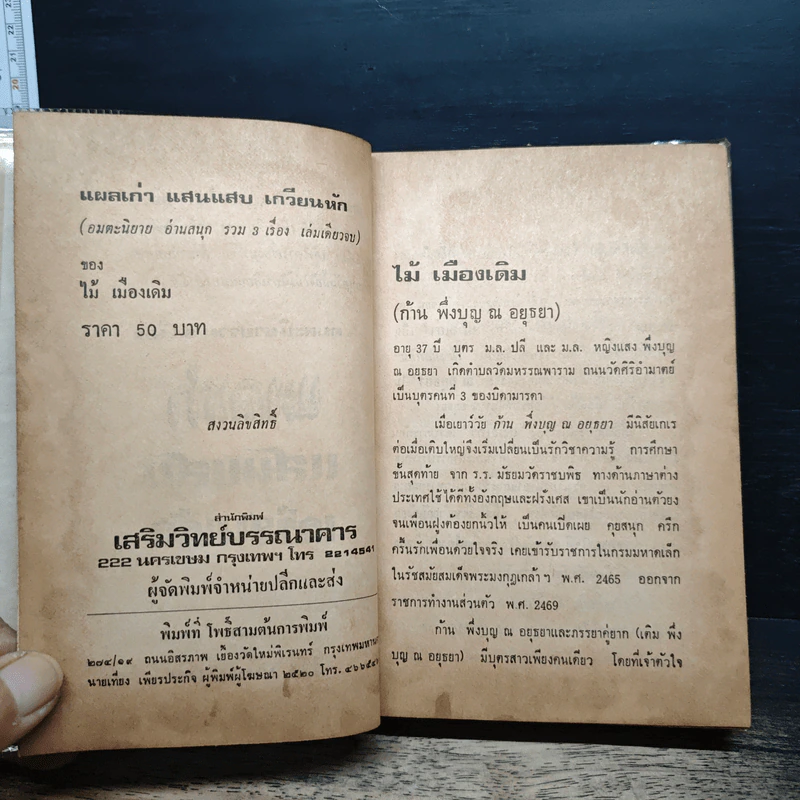 แผลเก่า แสนแสบ เกวียนหัก
(อมตะนิยาย อ่านสนุก รวม 3 เรื่อง เล่มเดียวจบ)
ของ
ไม้ เมืองเดิม
ราคา 50 บาท
สงวนลิขสิทธิ์
สำนักพิมพ์
เสริมวิทย์บรรณาคาร
222 นครเขษม กรุงเทพฯ โทร 2214541
ผู้จัดพิมพ์จำหน่ายปลีกและส่ง
พิมพ์ที่ โพธิ์สามต้นการพิมพ์
๒๘๔/๑๙ ถนนอิสรภาพ เยื้องวัดใหม่พิเรนทร์ กรุงเทพมหานคร
นายเที่ยง เพียรประกิจ ผู้พิมพ์ผู้โฆษณา ๒๕๒๐ โทร.
ไม้ เมืองเดิม
(ก้าน พึ่งบุญ ณ อยุธยา)
อายุ 37 ปี บุตร ม.ล. ปลี และ ม.ล. หญิงแสง พึ่งบุญ
ณ อยุธยา เกิดตำบลวัดมหรรณพาราม ถนนวัดศิริอำมาตย์
เป็นบุตรคนที่ 3 ของบิดามารดา
เมื่อเยาว์วัย ก้าน พึ่งบุญ ณ อยุธยา มีนิสัยเกเร
ต่อเมื่อเติบใหญ่จึงเริ่มเปลี่ยนเป็นรักวิชาความรู้ การศึกษา
ขั้นสุดท้าย จาก ร.ร. มัธยมวัดราชบพิธ ทางด้านภาษาต่าง
ประเทศใช้ได้ดีทั้งอังกฤษและฝรั่งเศส เขาเป็นนักอ่านตัวยง
จนเพื่อนฝูงต้องยกนิ้วให้ เป็นคนเปิดเผย คุยสนุก ครึก
ครื้นรักเพื่อนด้วยใจจริง เคยเข้ารับราชการในกรมมหาดเล็ก
ในรัชสมัยสมเด็จพระมงกุฎเกล้าฯ พ.ศ. 2465 ออกจาก
ราชการทำงานส่วนตัว พ.ศ. 2469
ก้าน พึ่งบุญ ณ อยุธยาและภรรยาคู่ยาก (เดิม พึ่ง
บุญ ณ อยุธยา) มีบุตรสาวเพียงคนเดียว โดยที่เจ้าตัวใจ